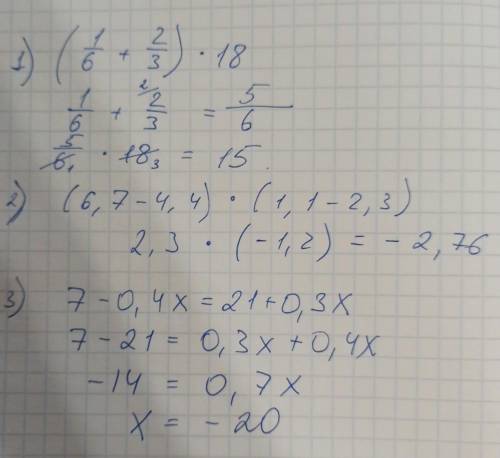 1) (1/6 + 2/3) · 18
1/6 + 2/3 ²/ = 5/6
5/6₁ · 18₃ = 15.
2) (6,7 - 4,4) · (1,1 - 2,3)
2,3 · (-1,2) = - 2,76
3) 7 - 0,4x = 21 + 0,3x
7 - 21 = 0,3x + 0,4x
-14 = 0,7x
x = - 20